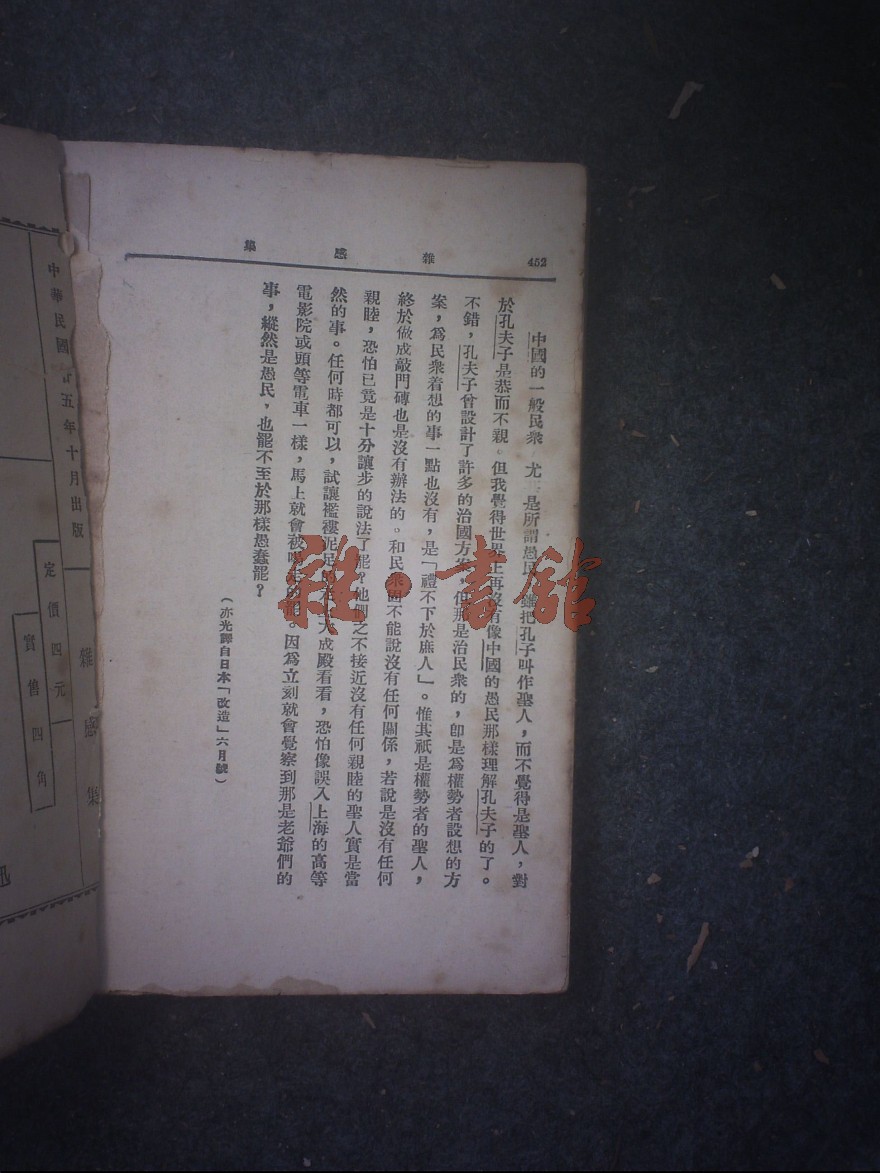 452
雜感集
中國的一般民衆 尤 是所謂愚民 雖把孔子叫作聖人，而不覺得是聖人，對
於孔夫子是恭而不親。但我覺得世界上再沒有像中國的愚民那樣理解孔夫子的了。
不錯，孔夫子曾設計了許多的治國方 但那是治民衆的，卽是爲權勢者設想的方
案，爲民衆着想的事一點也沒有，是「禮不下於庶人」。惟其祇是權勢者的聖人，
終於做成敲門磚也是沒有辦法的。和民衆固不能說沒有任何關係，若說是沒有任何
親睦，恐怕已竟是十分讓步的說法了罷？他們之不接近沒有任何親睦的聖人實是當
然的事。任何時都可以，試讓襤褸泥足 大成殿看看，恐怕像誤入上海的高等
電影院或頭等電車一樣，馬上就會被 的罷。因爲立刻就會覺察到那是老爺們的
事，縱然是愚民，也罷不至於那樣愚蠢罷？
（亦光譯自日本「改造」六月號）
雜·書館
雜感集
定價四元
實售四角
中華民國 五年十月出版